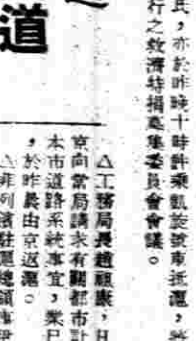 道
民，亦於昨晚十時許乘凱旋號車抵滬，
行之救濟特捐募集委員會會議。
△工務局長趙祖康，
京向當局講求有關都市計
本市道路系統事宜，業已
，於昨晨由京返滬。
△菲列濱駐滬總領事